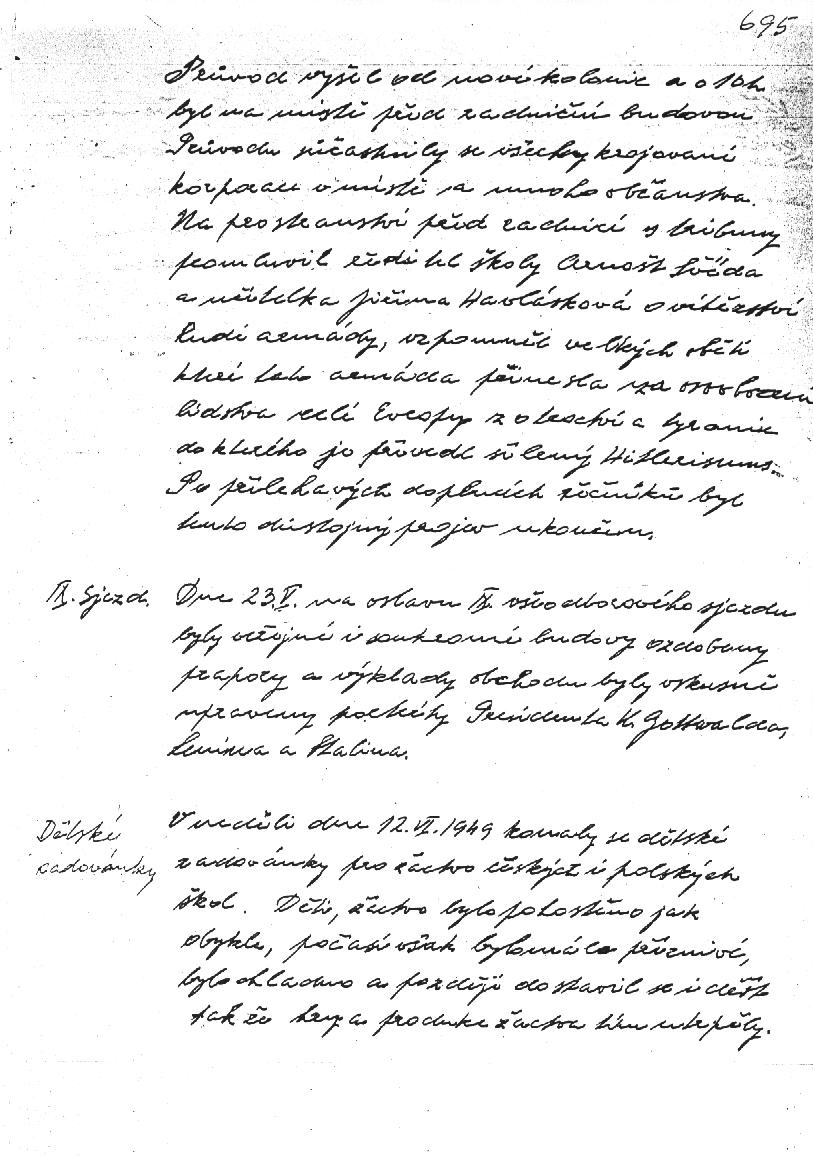 695
Průvod vyšel od nové kolonie a o 10h
byl na místě před radniční budovou
Průvodu súčastnily se všechny krojované
korporace v místě a mnoho občanstva.
Na prostranství před radnicí s tribuny
promluvil ředitel školy Arnošt
a učitelka Jiřina Havlásková o vítězství
Rudé armády, vzpomněl velkých obětí
které tato armáda přinesla za osvobození
lidstva celé Evropy z otroctví a tyranie
do kterého jo přivedl šílený Hitlerismus.
Po přiléhavých doplncích řečníků byl
tento důstojný projev ukončen.
IX. Sjezd. Dne 23.V. na oslavu IX. všeodborového sjezdu
byly veřejné i soukromé budovy ozdobeny
prapory a výklady obchodu byly vkusně
upraveny portréty Presidenta K. Gottwalda,
Lenina a Stalina.
Dětské
radovánky
V neděli dne 12.VI.1949 konaly se dětské
radovánky pro žactvo českých i polských
škol. Děti, žactvo bylo pohostěno jak
obykle, počasí však bylo málo příznivé,
bylo chladno a později dostavil se i déšť
tak že hry a produkce žactva tím utrpěly.